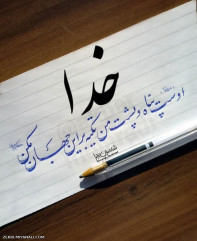 خدا
اوست پناه و پشت من تکیه بر این جهان مکن